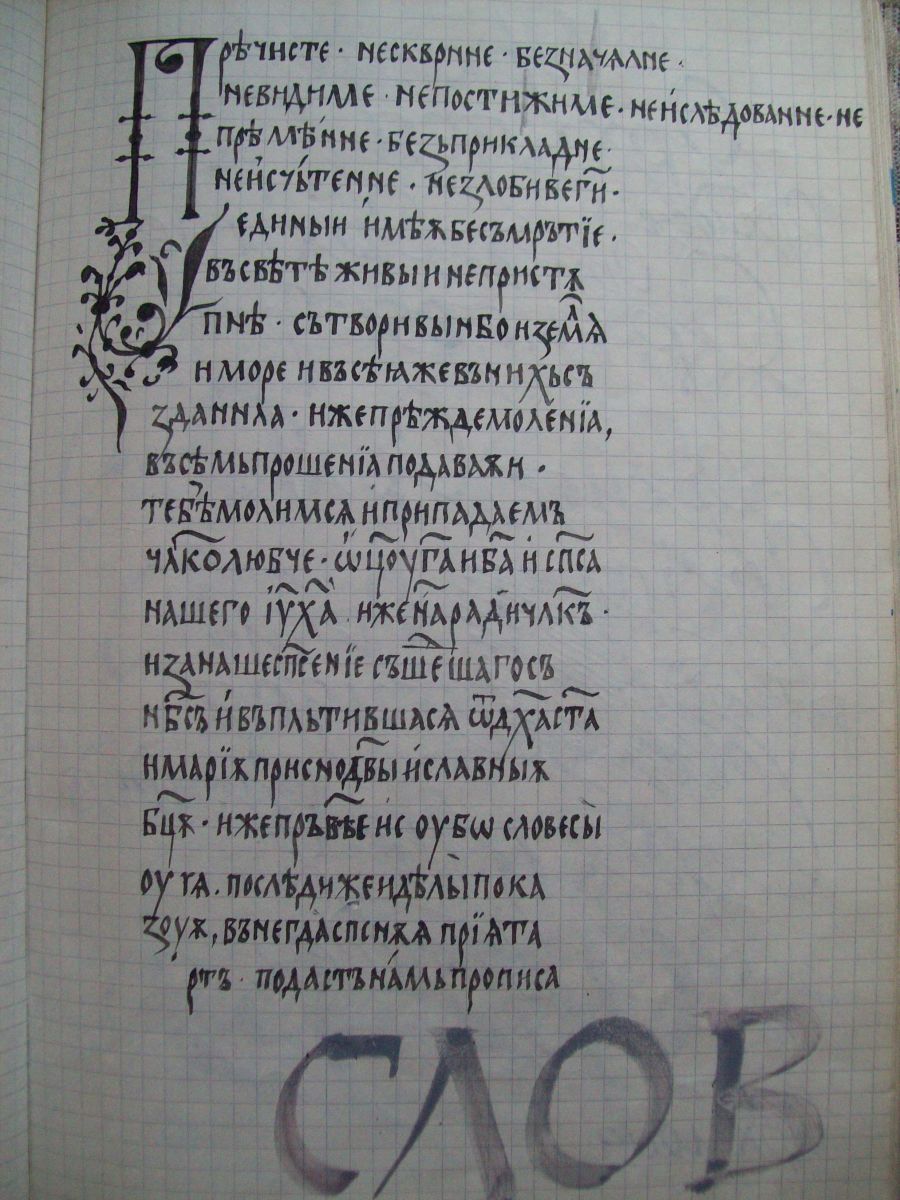 Прѣчисте · нескврнне · безначѧлне ·
невидиме · непостижиме · неислѣдованне · не
прѣмѣнне · безьприкладне ·
неисчьтенне · незлобивеги҃ ·
единыи имѣѫ бесъмрътїе ·
въсвѣтѣживыи непристѫ
пнѣ · сътворивыинбо и землѧ
и море ивъсѣꙗжевънихьсъ
зданнаа · ижепрѣждемоленїа,
въсѣмьпрошенїа подаваѫи ·
тебѣмолимсѧ иприпадаемъ
чл҃колюбче · ѡц҃оуг҃аиб҃а и сп҃са
нашего іу҃х҃а иженарадичл҃къ ·
изанашесп҃сенїе съшешагосъ
нб҃съ и въпльтившасѧ ѿдх҃аст҃а
и марїѫ приснодв҃ы и славныѫ
бц҃ѫ · ижепръвѣе ис оубѡ словесы
оучѧ · послѣдижеидѣлы пока
зоуѫ, вънегдасп҃снѫѫ прїѧта
ртъ · подастънамьпрописа
СЛОВ